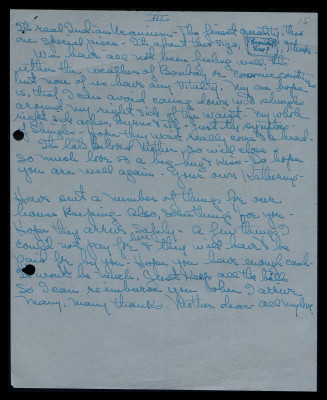 III.
15
It's real Indian Craning - The finest quality. This
one special piece - It's about this size, and goes
We have all not been feeling well. It's
either the weather of Bombay or cosmic conditions
but none of us have any vitality. My one hope
is, that I can avoid coming down with shingles
around my right side of the waist. My whole
right side aches, burns & stings - just the symptoms
of Shingles - hope they won't really come to a head -
It's late beloved Mother, so will close -
So much love & a big hug & Kiss - Do hope
you are well again - Your own Katherine -
Have sent a number of things for our
house keeping. Also, some things for you -
Hope they arrive safely. A few things I
could not pay for here & they will have to be
paid for by you. Hope you have enough cash -
It won't be much. Just keep all the bills
so I can reimburse you when I arrive.
Many, many thanks, Mother dear - all my love